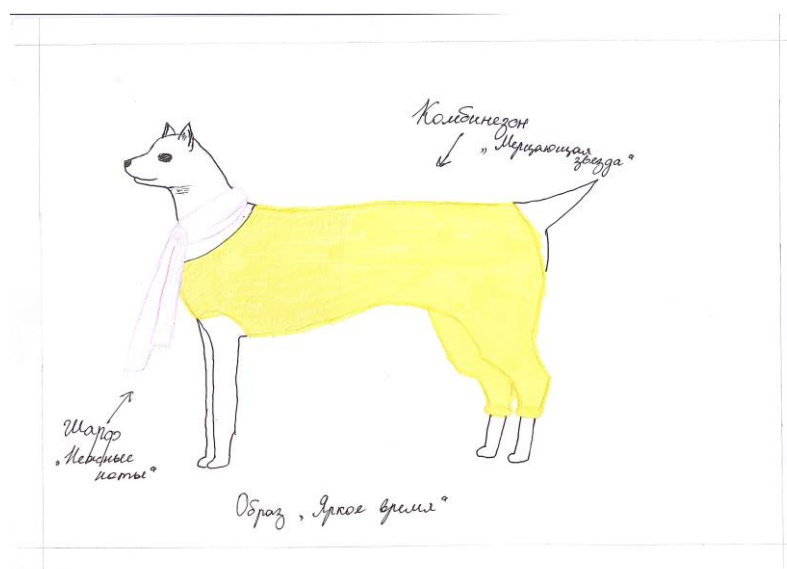 Комбинезон
„Мерцающая
звезда“
Шарф
„Нежные
ноты“
Образ „Яркое время“